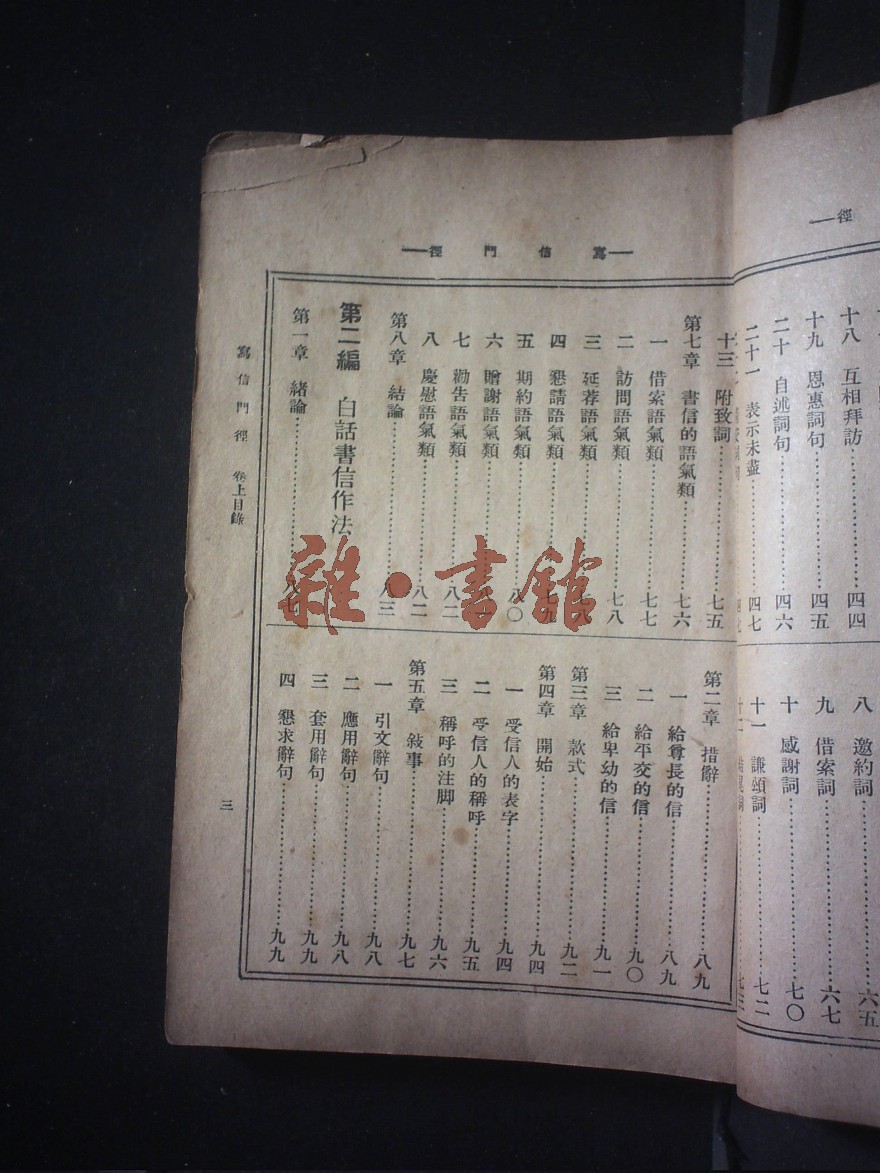 徑
十八 互相拜訪 四四
十九 恩惠詞句 四五
二十 自述詞句 四六
二十一 表示未盡 四七
八 邀約詞 六五
九 借索詞 六七
十 感謝詞 七〇
十一 謙頌詞 七二
寫信門徑
十三 附致詞 七五
第七章 書信的語氣類 七六
一 借索語氣類 七七
二 訪問語氣類 七八
三 延荐語氣類 七八
四 懇請語氣類 七九
五 期約語氣類 八〇
六 贈謝語氣類
七 勸告語氣類 八二
八 慶慰語氣類 八二
第八章 結論 八三
第二編 白話書信作法
第一章 緒論 八七
第二章 措辭 八九
一 給尊長的信 八九
二 給平交的信 九〇
三 給卑幼的信 九一
第三章 款式 九二
第四章 開始 九四
一 受信人的表字 九四
二 受信人的稱呼 九五
三 稱呼的注脚 九六
第五章 敍事 九七
一 引文辭句 九八
二 應用辭句 九八
三 套用辭句 九九
四 懇求辭句 九九
寫信門徑 卷上目錄
三
雜·書館